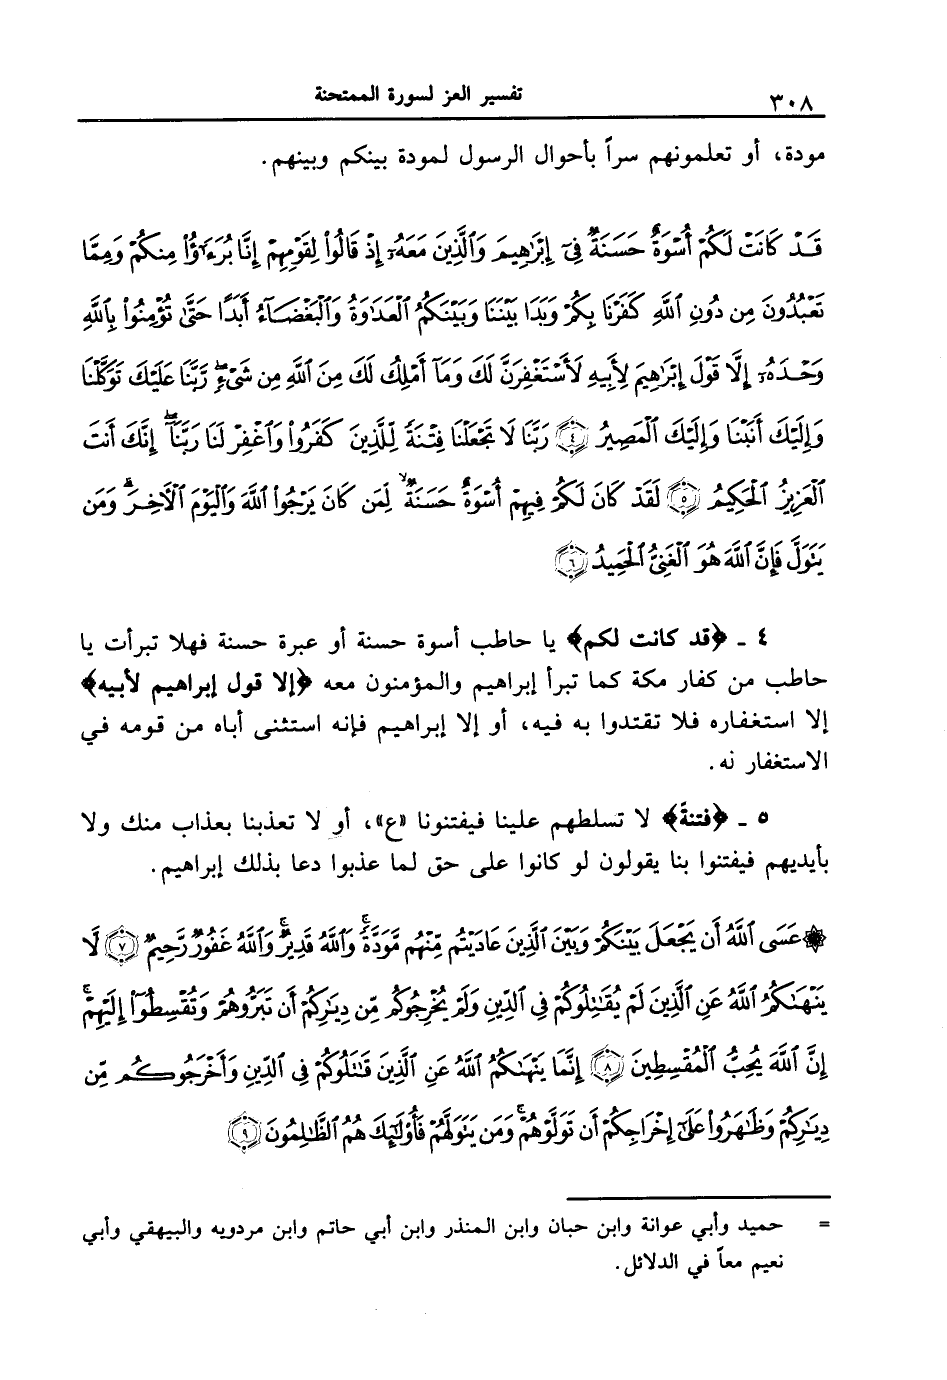 ٣٠٨
تفسير العز لسورة الممتحنة
مودة، أو تعلمونهم سراً بأحوال الرسول لمودة بينكم وبينهم.
قَدْ كَانَتْ لَكُمْ أُسْوَةٌ حَسَنَةٌ فِىٓ إِبْرَٰهِيمَ وَٱلَّذِينَ مَعَهُۥٓ إِذْ قَالُوا۟ لِقَوْمِهِمْ إِنَّا بُرَءَٰٓؤُا۟ مِنكُمْ وَمِمَّا
تَعْبُدُونَ مِن دُونِ ٱللَّهِ كَفَرْنَا بِكُمْ وَبَدَا بَيْنَنَا وَبَيْنَكُمُ ٱلْعَدَٰوَةُ وَٱلْبَغْضَآءُ أَبَدًا حَتَّىٰ تُؤْمِنُوا۟ بِٱللَّهِ
وَحْدَهُۥٓ إِلَّا قَوْلَ إِبْرَٰهِيمَ لِأَبِيهِ لَأَسْتَغْفِرَنَّ لَكَ وَمَآ أَمْلِكُ لَكَ مِنَ ٱللَّهِ مِن شَىْءٍ ۖ رَّبَّنَا عَلَيْكَ تَوَكَّلْنَا
وَإِلَيْكَ أَنَبْنَا وَإِلَيْكَ ٱلْمَصِيرُ ﴿٤﴾ رَبَّنَا لَا تَجْعَلْنَا فِتْنَةً لِّلَّذِينَ كَفَرُوا۟ وَٱغْفِرْ لَنَا رَبَّنَآ ۖ إِنَّكَ أَنتَ
ٱلْعَزِيزُ ٱلْحَكِيمُ ﴿٥﴾ لَقَدْ كَانَ لَكُمْ فِيهِمْ أُسْوَةٌ حَسَنَةٌ لِّمَن كَانَ يَرْجُوا۟ ٱللَّهَ وَٱلْيَوْمَ ٱلْءَاخِرَ ۚ وَمَن
يَتَوَلَّ فَإِنَّ ٱللَّهَ هُوَ ٱلْغَنِىُّ ٱلْحَمِيدُ ﴿٦﴾
٤ - ﴿قد كانت لكم﴾ يا حاطب أسوة حسنة أو عبرة حسنة فهلا تبرأت يا
حاطب من كفار مكة كما تبرأ إبراهيم والمؤمنون معه ﴿إلا قول إبراهيم لأبيه﴾
إلا استغفاره فلا تقتدوا به فيه، أو إلا إبراهيم فإنه استثنى أباه من قومه في
الاستغفار له.
٥ - ﴿فتنة﴾ لا تسلطهم علينا فيفتنونا «ع»، أو لا تعذبنا بعذاب منك ولا
بأيديهم فيفتنوا بنا يقولون لو كانوا على حق لما عذبوا دعا بذلك إبراهيم.
۞ عَسَى ٱللَّهُ أَن يَجْعَلَ بَيْنَكُمْ وَبَيْنَ ٱلَّذِينَ عَادَيْتُم مِّنْهُم مَّوَدَّةً ۚ وَٱللَّهُ قَدِيرٌ ۚ وَٱللَّهُ غَفُورٌ رَّحِيمٌ ﴿٧﴾ لَّا
يَنْهَىٰكُمُ ٱللَّهُ عَنِ ٱلَّذِينَ لَمْ يُقَٰتِلُوكُمْ فِى ٱلدِّينِ وَلَمْ يُخْرِجُوكُم مِّن دِيَٰرِكُمْ أَن تَبَرُّوهُمْ وَتُقْسِطُوٓا۟ إِلَيْهِمْ ۚ
إِنَّ ٱللَّهَ يُحِبُّ ٱلْمُقْسِطِينَ ﴿٨﴾ إِنَّمَا يَنْهَىٰكُمُ ٱللَّهُ عَنِ ٱلَّذِينَ قَٰتَلُوكُمْ فِى ٱلدِّينِ وَأَخْرَجُوكُم مِّن
دِيَٰرِكُمْ وَظَٰهَرُوا۟ عَلَىٰٓ إِخْرَاجِكُمْ أَن تَوَلَّوْهُمْ ۚ وَمَن يَتَوَلَّهُمْ فَأُو۟لَٰٓئِكَ هُمُ ٱلظَّٰلِمُونَ ﴿٩﴾
= حميد وأبي عوانة وابن حبان وابن المنذر وابن أبي حاتم وابن مردويه والبيهقي وأبي
نعيم معاً في الدلائل.